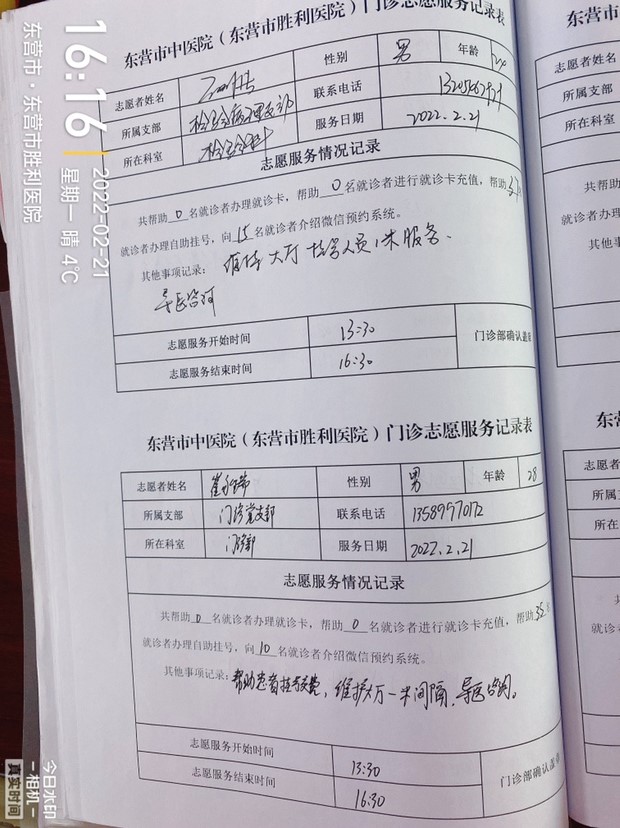 东营市中医院（东营市胜利医院）门诊志愿服务记录表
志愿者姓名 性别 男 年龄
所属支部 检验病理支部 联系电话
所在科室 检验科 服务日期 2022.2.21
志愿服务情况记录
共帮助 0 名就诊者办理就诊卡，帮助 0 名就诊者进行就诊卡充值，帮助
就诊者办理自助挂号，向 15 名就诊者介绍微信预约系统。
其他事项记录： 维持大厅 人员1米服务、
导医咨询
志愿服务开始时间 13:30 门诊部确认盖章
志愿服务结束时间 16:30
东营市中医院（东营市胜利医院）门诊志愿服务记录表
志愿者姓名 性别 男 年龄 28
所属支部 门诊党支部 联系电话 13589970172
所在科室 门诊部 服务日期 2022.2.21
志愿服务情况记录
共帮助 0 名就诊者办理就诊卡，帮助 0 名就诊者进行就诊卡充值，帮助 35 名
就诊者办理自助挂号，向 10 名就诊者介绍微信预约系统。
其他事项记录：帮助患者挂号交费，维护大厅一米间隔，导医咨询。
志愿服务开始时间 13:30 门诊部确认盖章
志愿服务结束时间 16:30
16:16
2022-02-21
星期一 晴 4℃
东营市·东营市胜利医院
今日水印
-相机-
真实时间
东营市
志愿者姓
所属支部
所在科室
共
就诊者办
其他
东
志愿者
所属
所在
就诊